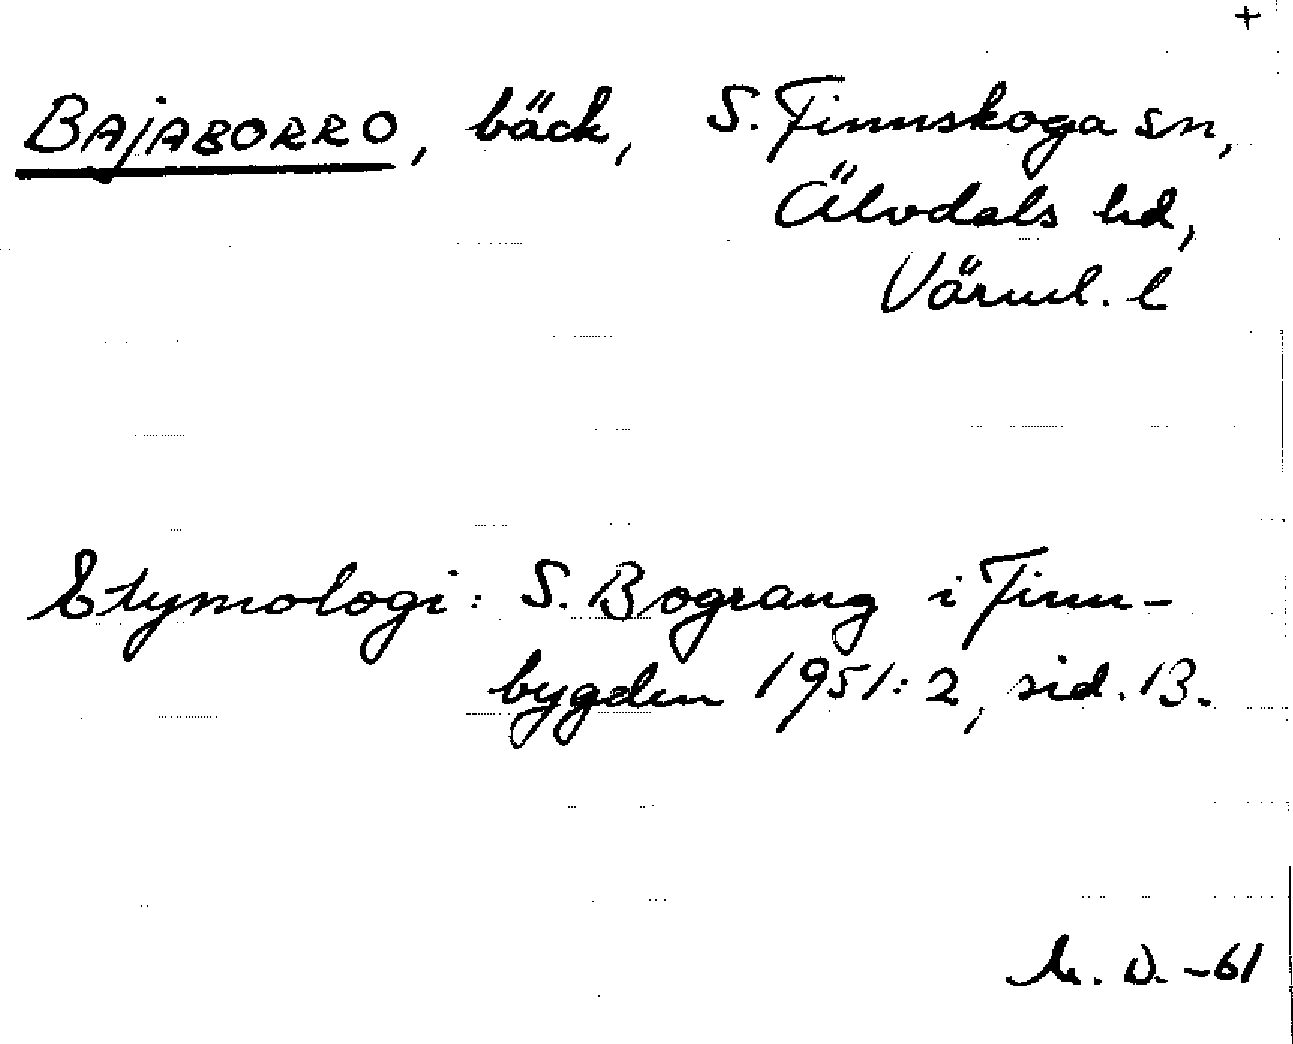 +
BAJABORRO, bäck, S. Finnskoga sn,
Älvdals hd,
Värml. l
Etymologi: S. Bograng i Finn-
bygden 1951:2, sid. 13.
M. D. -61